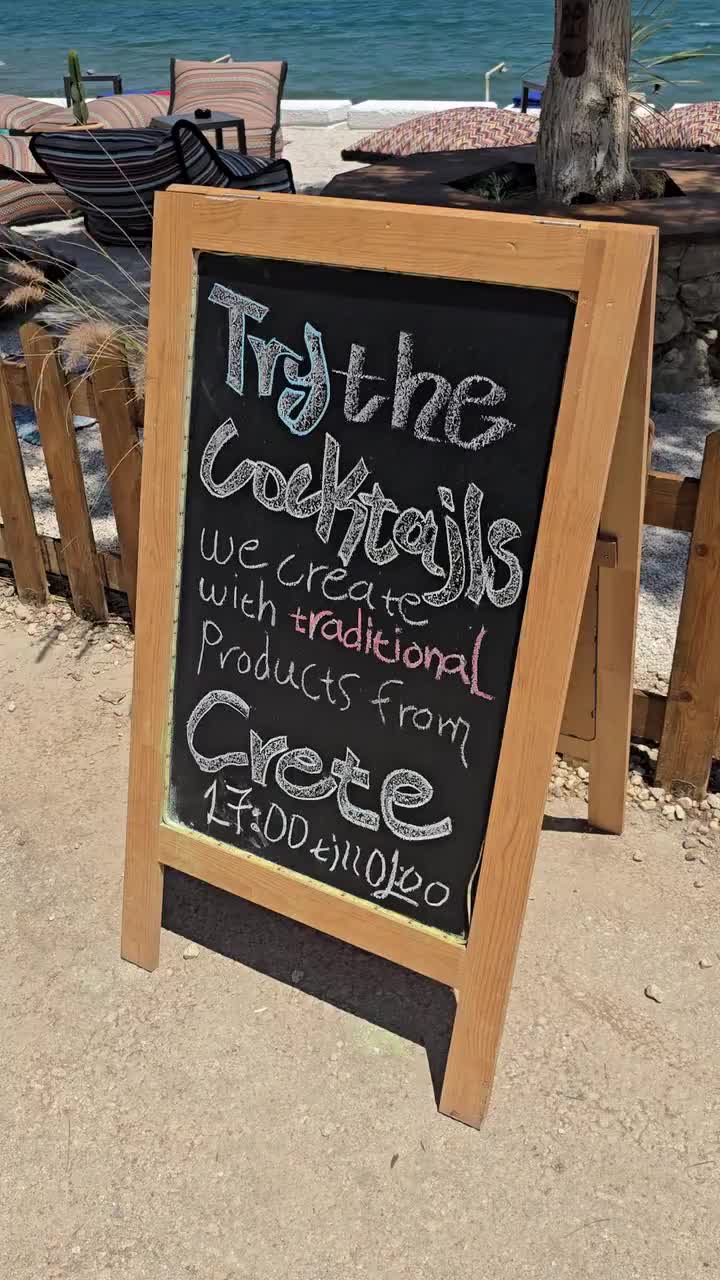 Try the
Cocktails
we create
with traditional
Products from
Crete
17:00 till 01:00